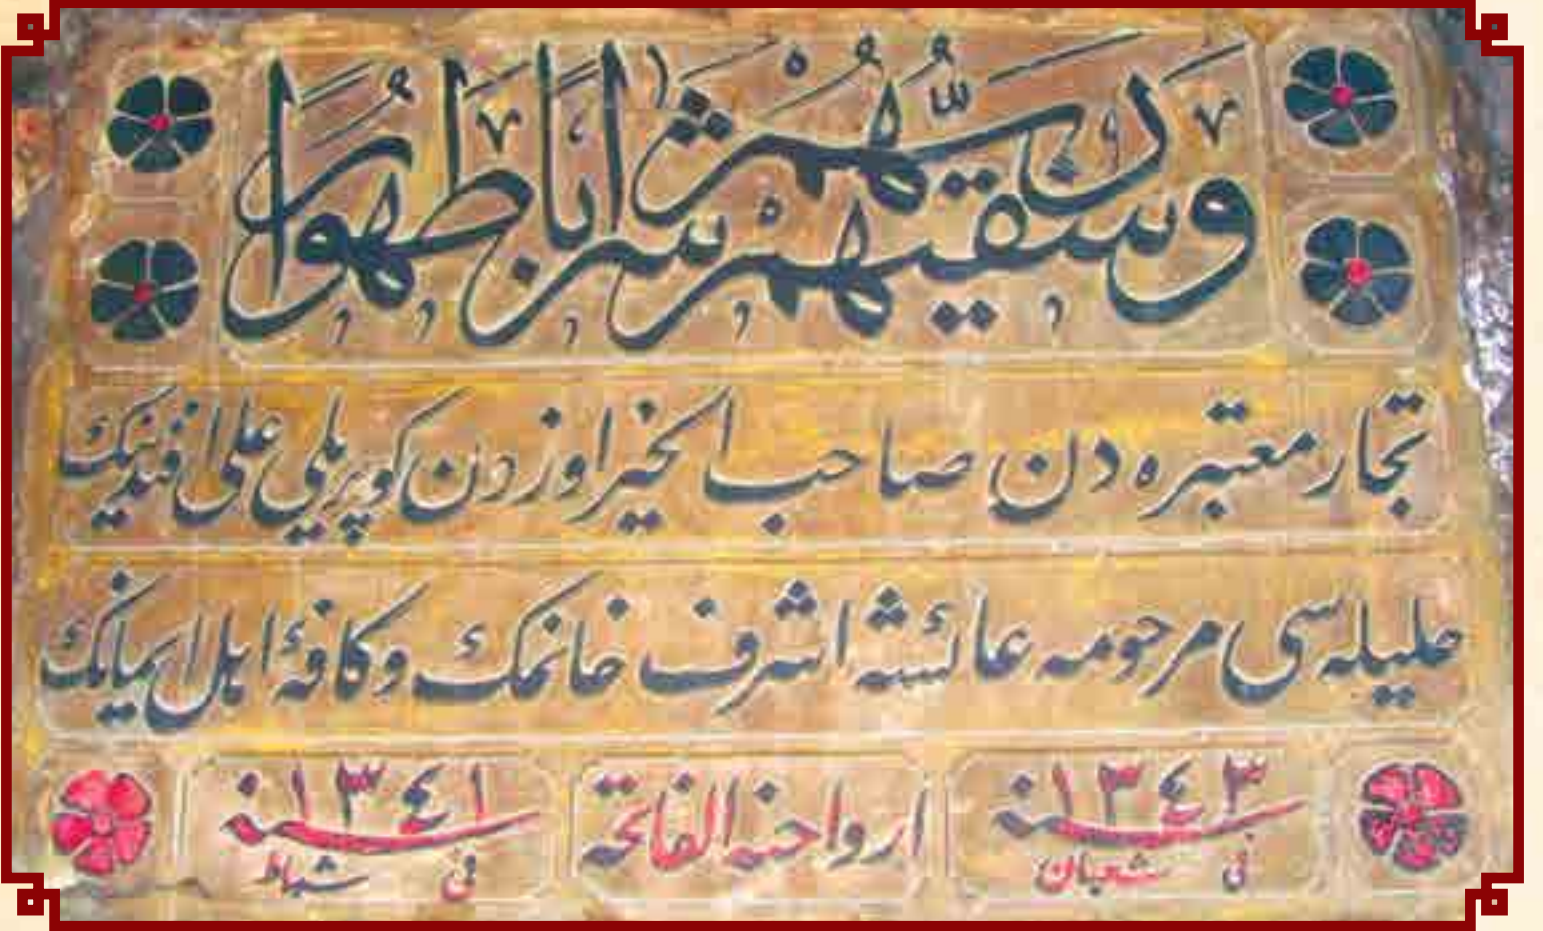 وسقيهم ربهم شرابا طهورا
تجار معتبره دن صاحب الخير اوزدن كوپريلي على افندينك
حليله سى مرحومه عائشه اشرف خانمك وكافهٔ اهل ايمانك
سنه ١٣٤٣
في شعبان
ارواحنه الفاتحه
سنه ١٣٤١
في شباط